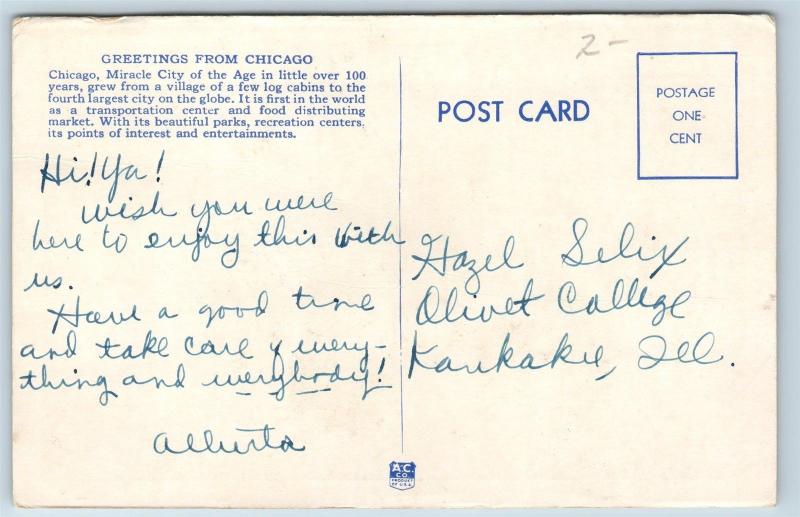 2-
GREETINGS FROM CHICAGO
Chicago, Miracle City of the Age in little over 100
years, grew from a village of a few log cabins to the
fourth largest city on the globe. It is first in the world
as a transportation center and food distributing
market. With its beautiful parks, recreation centers,
its points of interest and entertainments.
POST CARD
POSTAGE
ONE
CENT
Hi! Ya!
Wish you were
here to enjoy this with
us.
Have a good time
and take care of every-
thing and everybody!
Alberta
Hazel Selix
Olivet College
Kankakee, Ill.
A.C.
CO
PRODUCT
OF U.S.A.